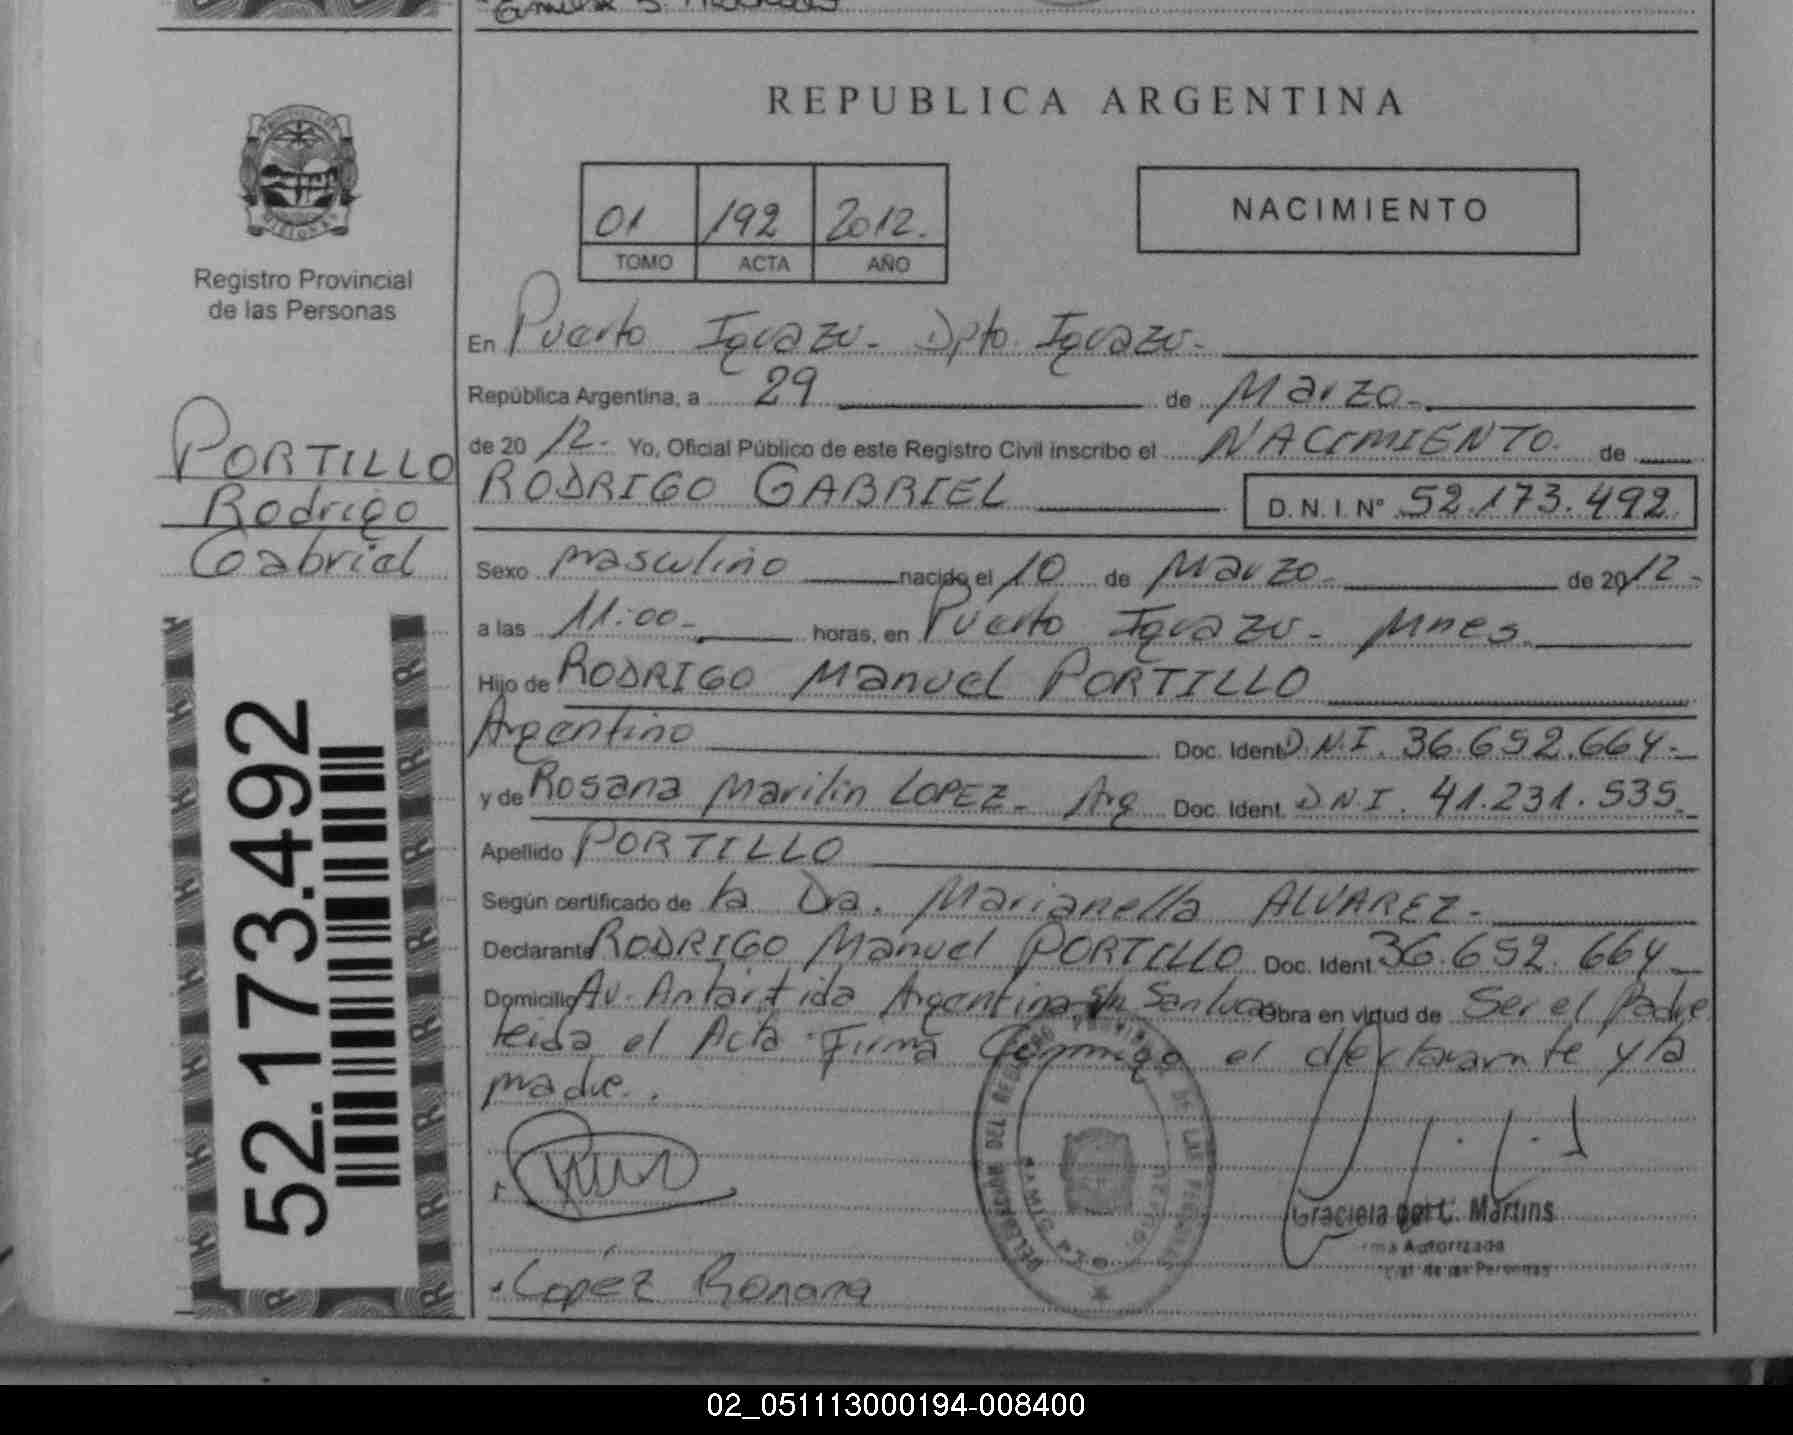 REPUBLICA ARGENTINA
01 192 2012.
TOMO ACTA AÑO
NACIMIENTO
Registro Provincial
de las Personas
PORTILLO
Rodrigo
Gabriel
52.173.492
En Puerto Iguazu - Dpto. Iguazu -
República Argentina, a 29 de Marzo -
de 20 12 - Yo, Oficial Público de este Registro Civil inscribo el NACIMIENTO de
RODRIGO GABRIEL D. N. I. Nº 52.173.492
Sexo masculino nacido el 10 de Marzo - de 20 12 -
a las 11:00 - horas, en Puerto Iguazu - Mnes.
Hijo de RODRIGO Manuel PORTILLO
Argentino Doc. Ident. D.N.I. 36.652.664 -
y de Rosana Marilin LOPEZ - Arg Doc. Ident. D.N.I. 41.231.535 -
Apellido PORTILLO
Según certificado de la Dra. Marianella ALVAREZ -
Declarante RODRIGO Manuel PORTILLO Doc. Ident 36.652.664
Domicilio Av. Antartida Argentina s/n San Lucas Obra en virtud de Ser el padre
leida el Acta Firma Conmigo el declarante y la
madre.
DELEGACION DEL REGISTRO PROVINCIAL DE LAS PERSONAS
Graciela del C. Martins
Autorizada
de las Personas
Lopéz Rosana
02_051113000194-008400